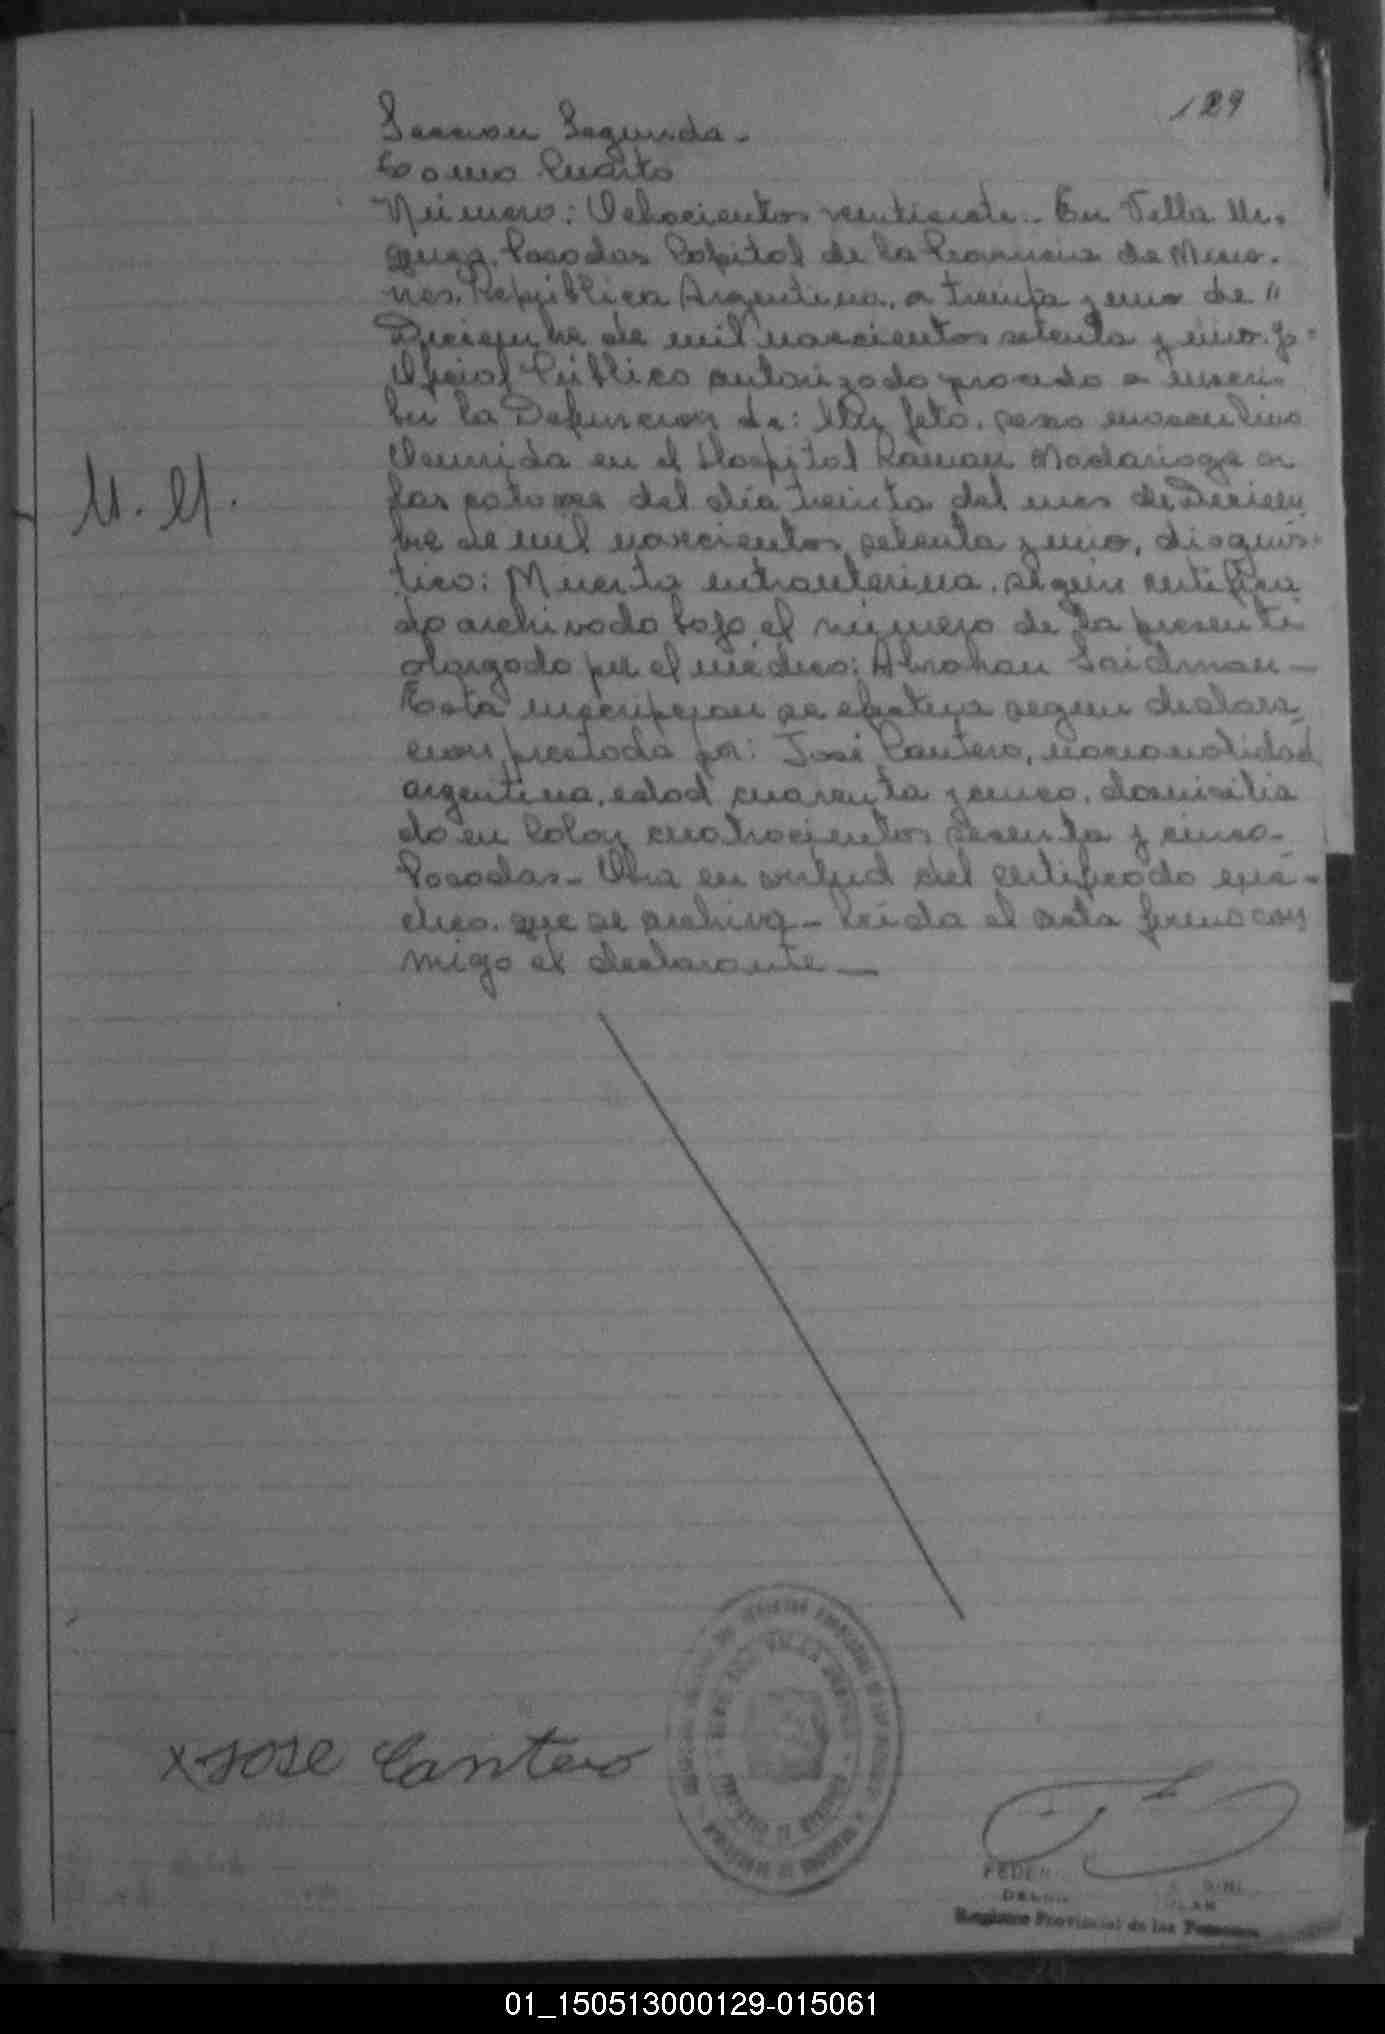 129
Seccion Segunda.-
Tomo Cuarto
Número: Ochocientos veintisiete.- En Villa Ur-
quiza, Posadas Capital de la Provincia de Misio-
nes, República Argentina, a treinta y uno de "
Diciembre de mil novecientos setenta y uno. Yo
Oficial Público autorizado procedo a inscri-
bir la Defuncion de: Un feto, sexo masculino
Ocurrida en el Hospital Ramon Madariaga a
las catorce del día treinta del mes de Diciem
bre de mil novecientos setenta y uno, diagnós-
tico: Muerte intrauterina, según certifica
do archivado bajo el número de la presente
otorgado por el médico: Abraham Saidman-
Esta inscripcion se efectua segun declara
cion prestada por: José Cantero, nacionalidad
argentina, edad cuarenta y cinco, domicilia
do en Colon cuatrocientos sesenta y cinco-
Posadas- Obra en virtud del certificado mé-
dico, que se archiva- Leída el acta firma con
migo el declarante-
x JOSE Cantero
VILLA URQUIZA
FEDER
DELE
Registro Provincial de las Personas
01_150513000129-015061